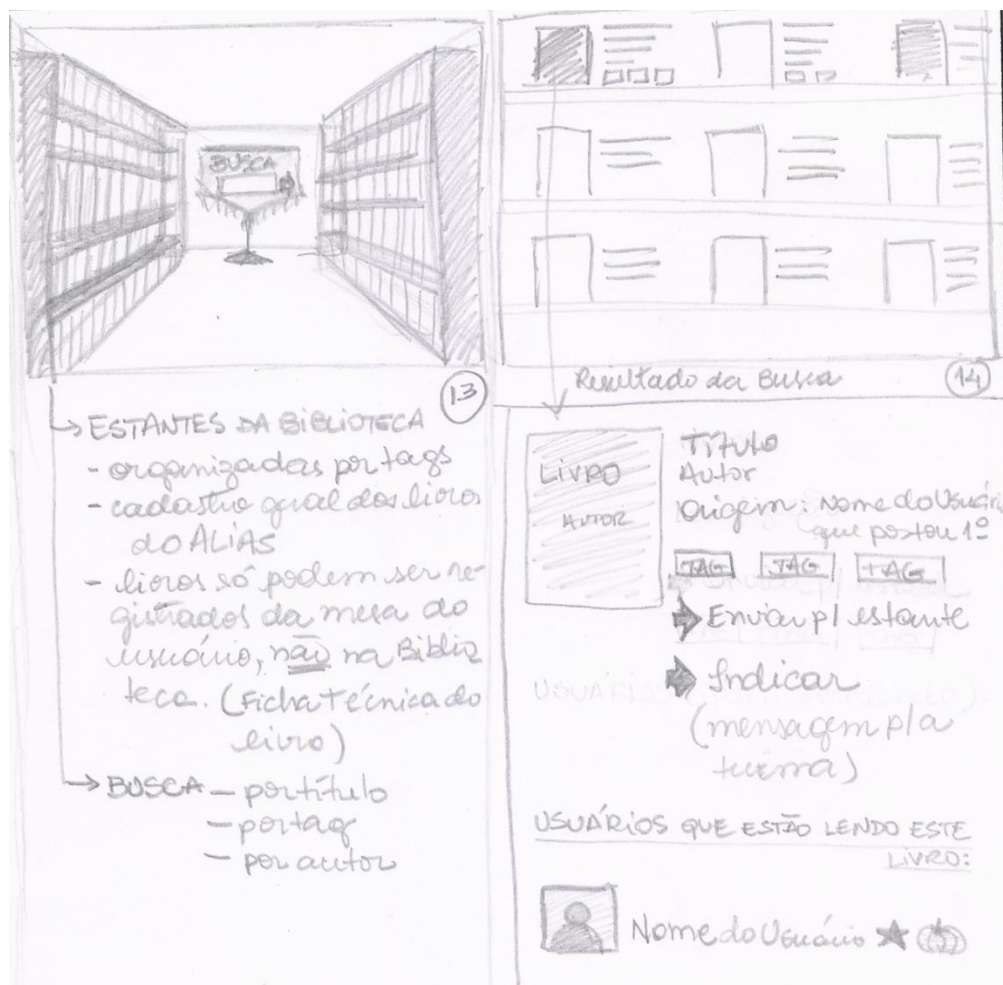 BUSCA
13
→ ESTANTES DA BIBLIOTECA
- organizadas por tags
- cadastro geral dos livros
do ALIAS
- livros só podem ser re-
gistrados da mesa do
usuário, não na Biblio
teca. (Ficha técnica do
livro)
→ BUSCA — por título
— por tag
— por autor
Resultado da Busca
14
LIVRO
AUTOR
Título
Autor
Origem: Nome do Usuário
que postou 1º
TAG TAG TAG
Enviar p/ estante
Indicar
(mensagem p/a
turma)
USUÁRIOS QUE ESTÃO LENDO ESTE
LIVRO:
Nome do Usuário